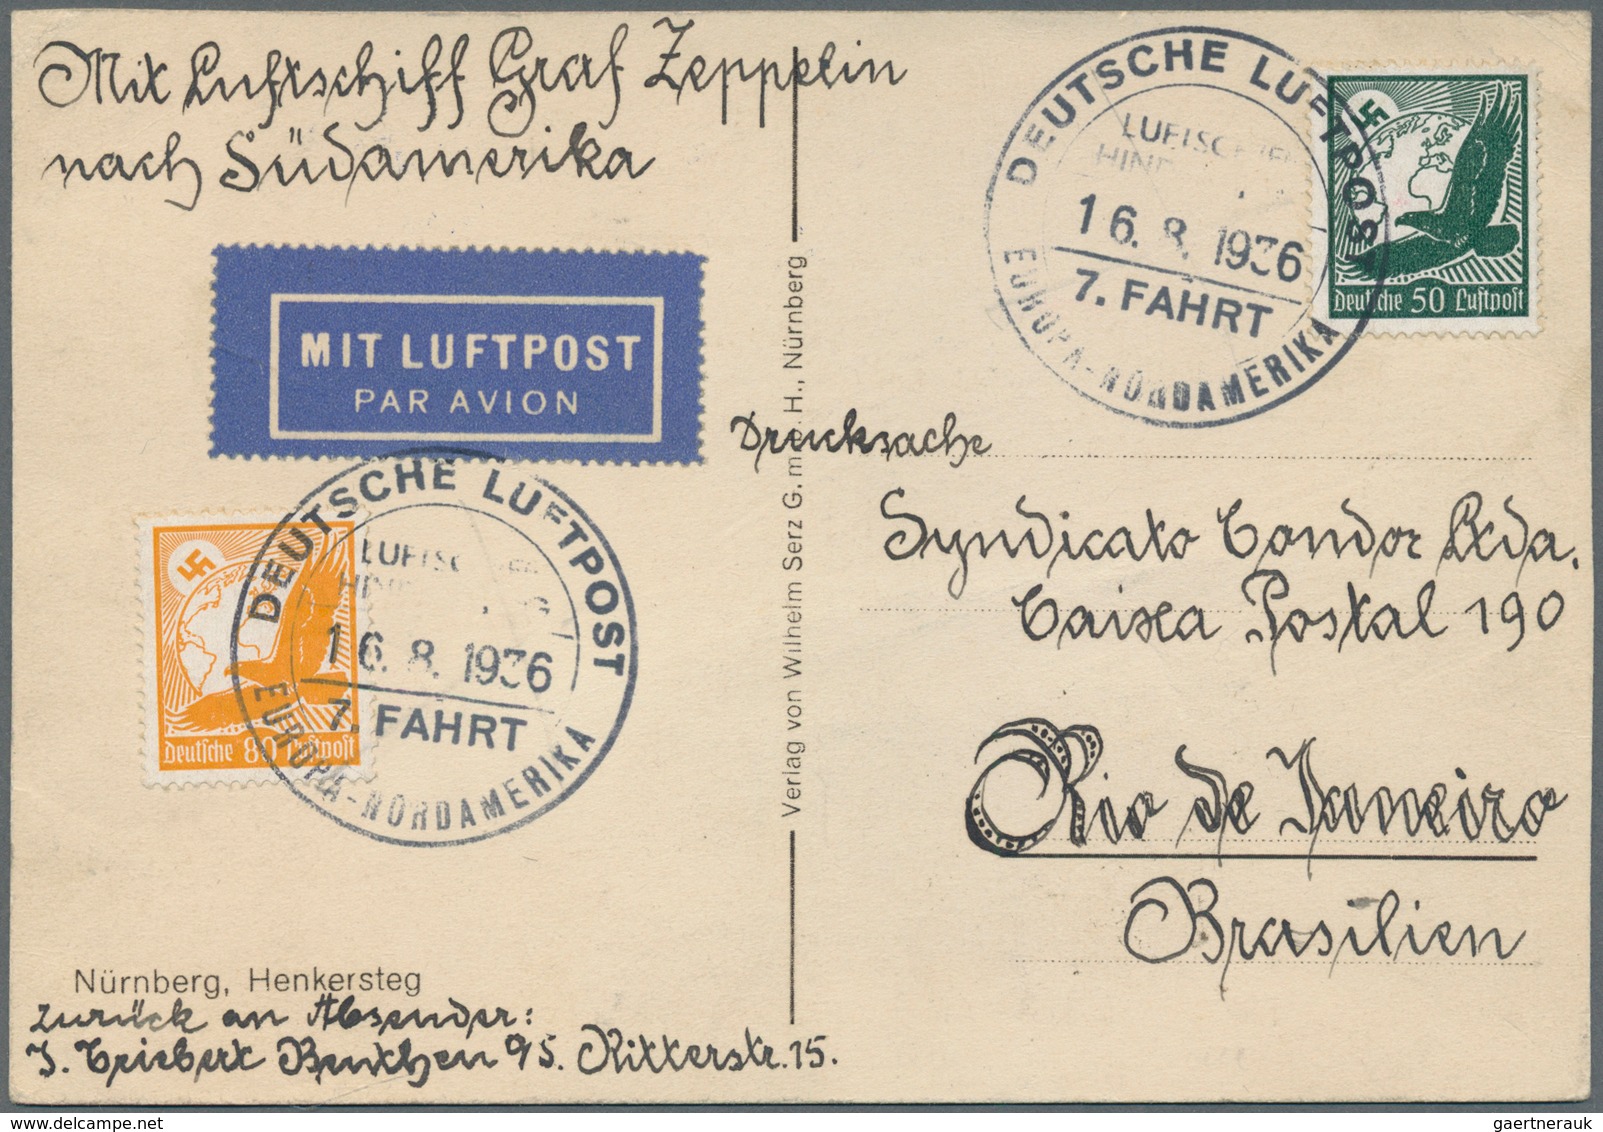 Mit Luftschiff Graf Zeppelin
nach Südamerika
MIT LUFTPOST
PAR AVION
DEUTSCHE LUFTPOST
16. 8. 1936
7. FAHRT
EUROPA-NORDAMERIKA
Deutsche 80 Luftpost
Nürnberg, Henkersteg
Zurück an Absender:
Beuthen O/S. Ritterstr. 15.
Verlag von Wilhelm Serz G. m. b. H., Nürnberg
DEUTSCHE LUFTPOST
16. 8. 1936
7. FAHRT
EUROPA-NORDAMERIKA
Deutsche 50 Luftpost
Drucksache
Syndicato Condor Ltda.
Caixa Postal 190
Rio de Janeiro
Brasilien
gaertnerauk